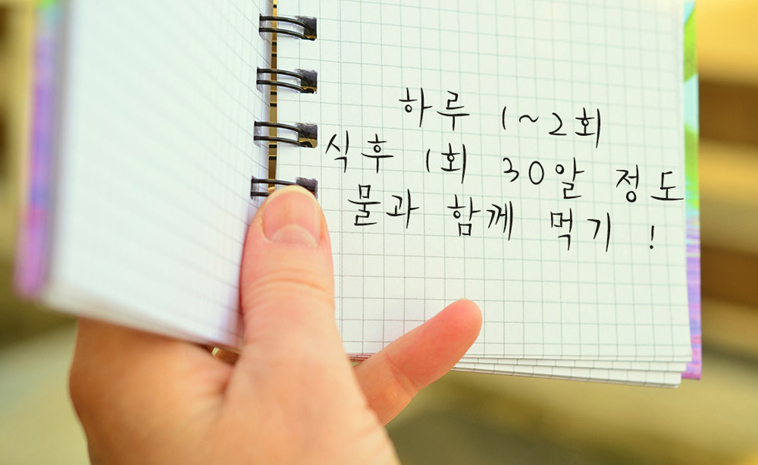 하루 1~2회
식후 1회 30알 정도
물과 함께 먹기!